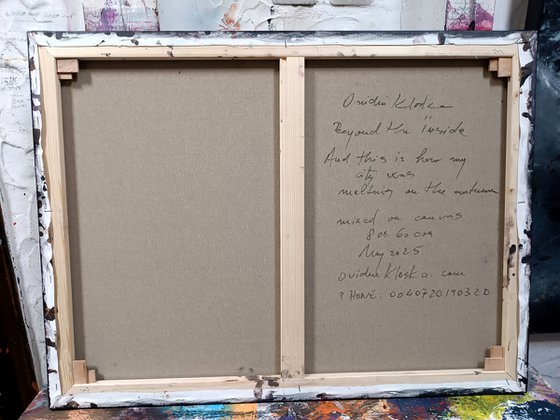 Ovidiu Kloska
Beyond the inside
And this is how my
city was
melting on the autumn
mixed on canvas
80x 60 cm
May 2025
ovidiu kloska. com
PHONE: 0040720190320